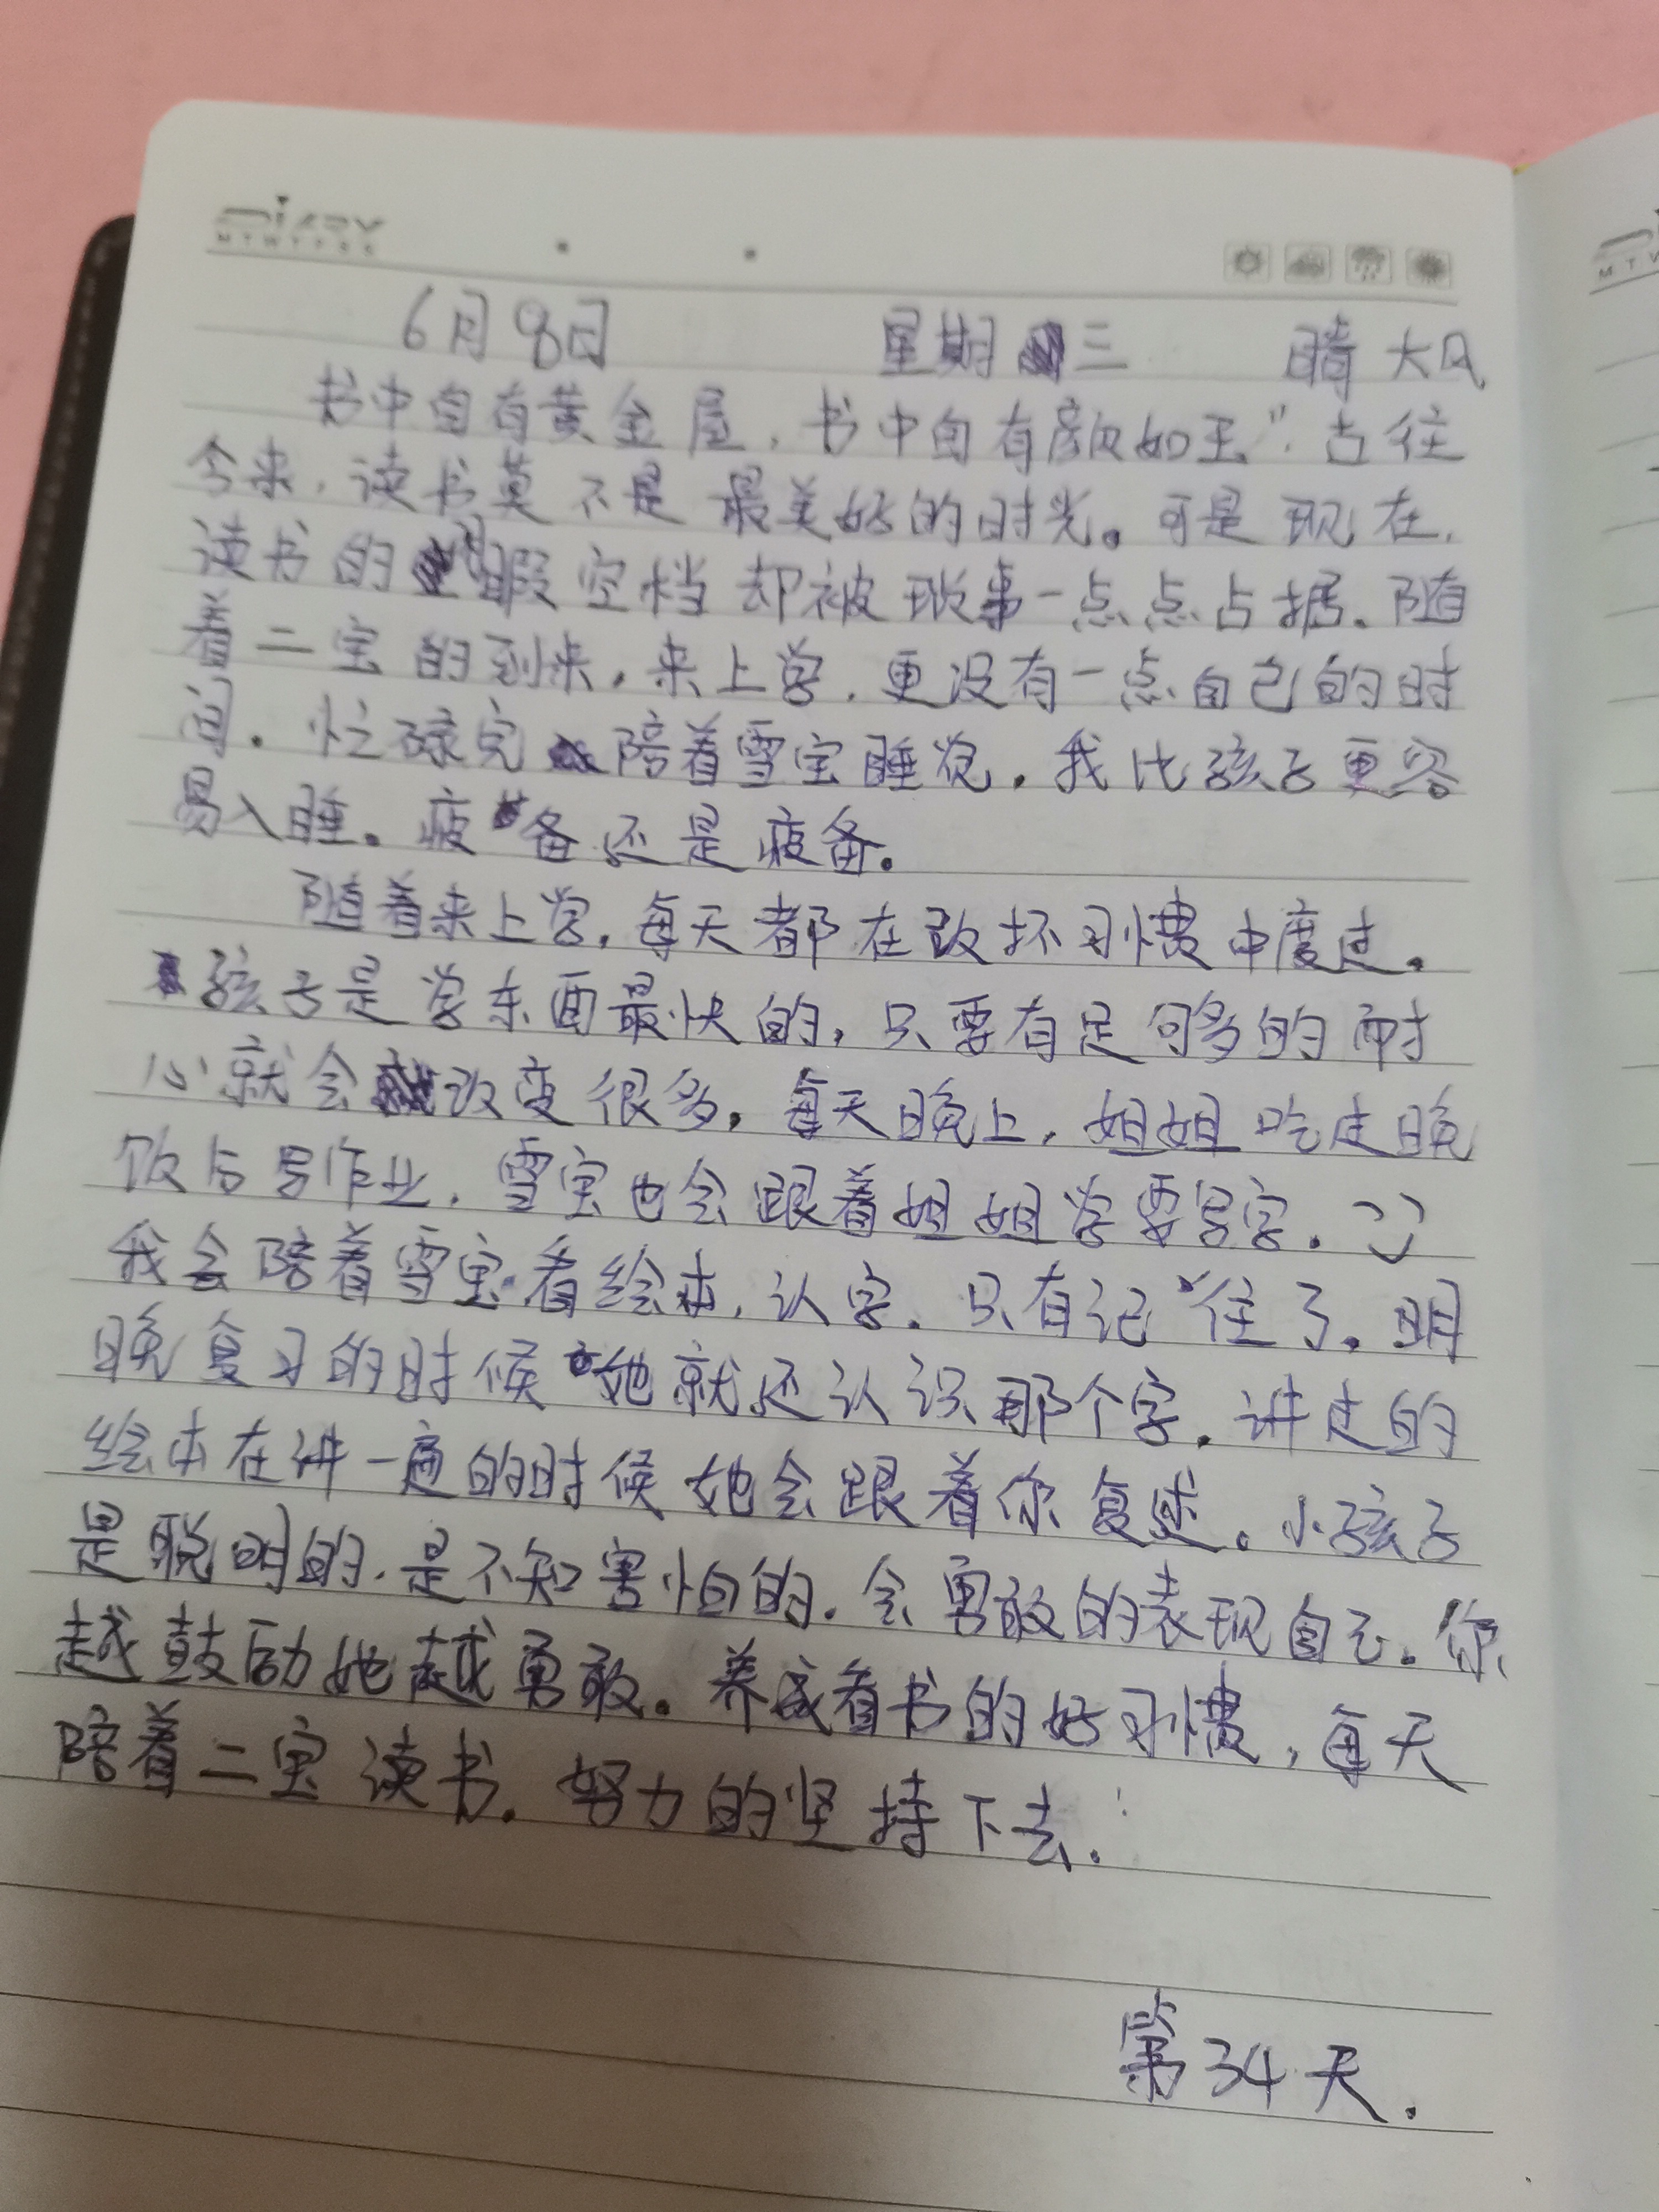 DIARY
MTWTFSS
6月8日 星期三 晴 大风
书中自有黄金屋,书中自有颜如玉"。古往
今来,读书莫不是最美好的时光。可是现在,
读书的暇空档却被琐事一点点占据。随
着二宝的到来,来上学,更没有一点自己的时
间。忙碌完陪着雪宝睡觉,我比孩子更容
易入睡。疲备还是疲备。
随着来上学,每天都在改坏习惯中度过。
孩子是学东西最快的,只要有足句多的耐
心就会改变很多,每天晚上,姐姐吃过晚
饭后写作业,雪宝也会跟着姐姐学要写字。
我会陪着雪宝看绘本,认字。只有记住了。明
晚复习的时候她就还认识那个字。讲过的
绘本在讲一遍的时候她会跟着你复述。小孩子
是聪明的,是不知害怕的。会勇敢的表现自己。你
越鼓励她越勇敢。养成看书的好习惯,每天
陪着二宝读书。努力的坚持下去。
第34天.